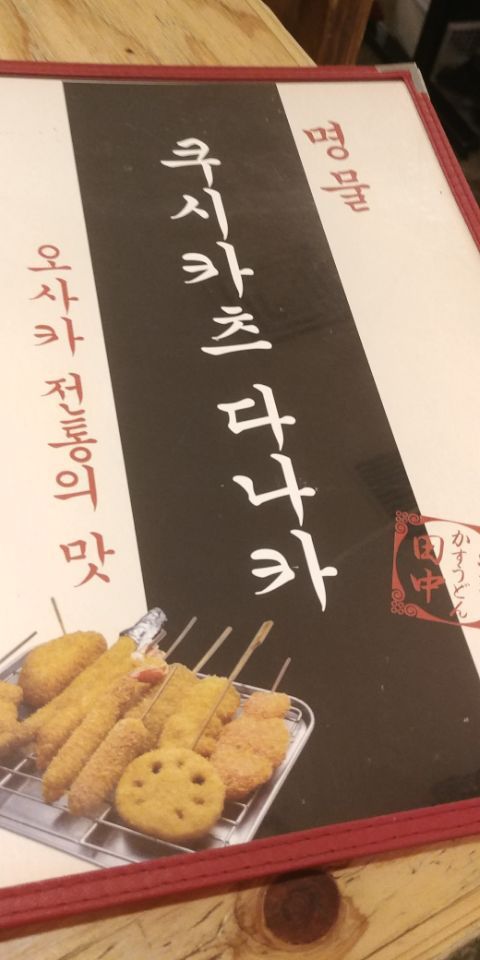 명물
쿠시카츠 다나카
오사카 전통의 맛
かすうどん
田中